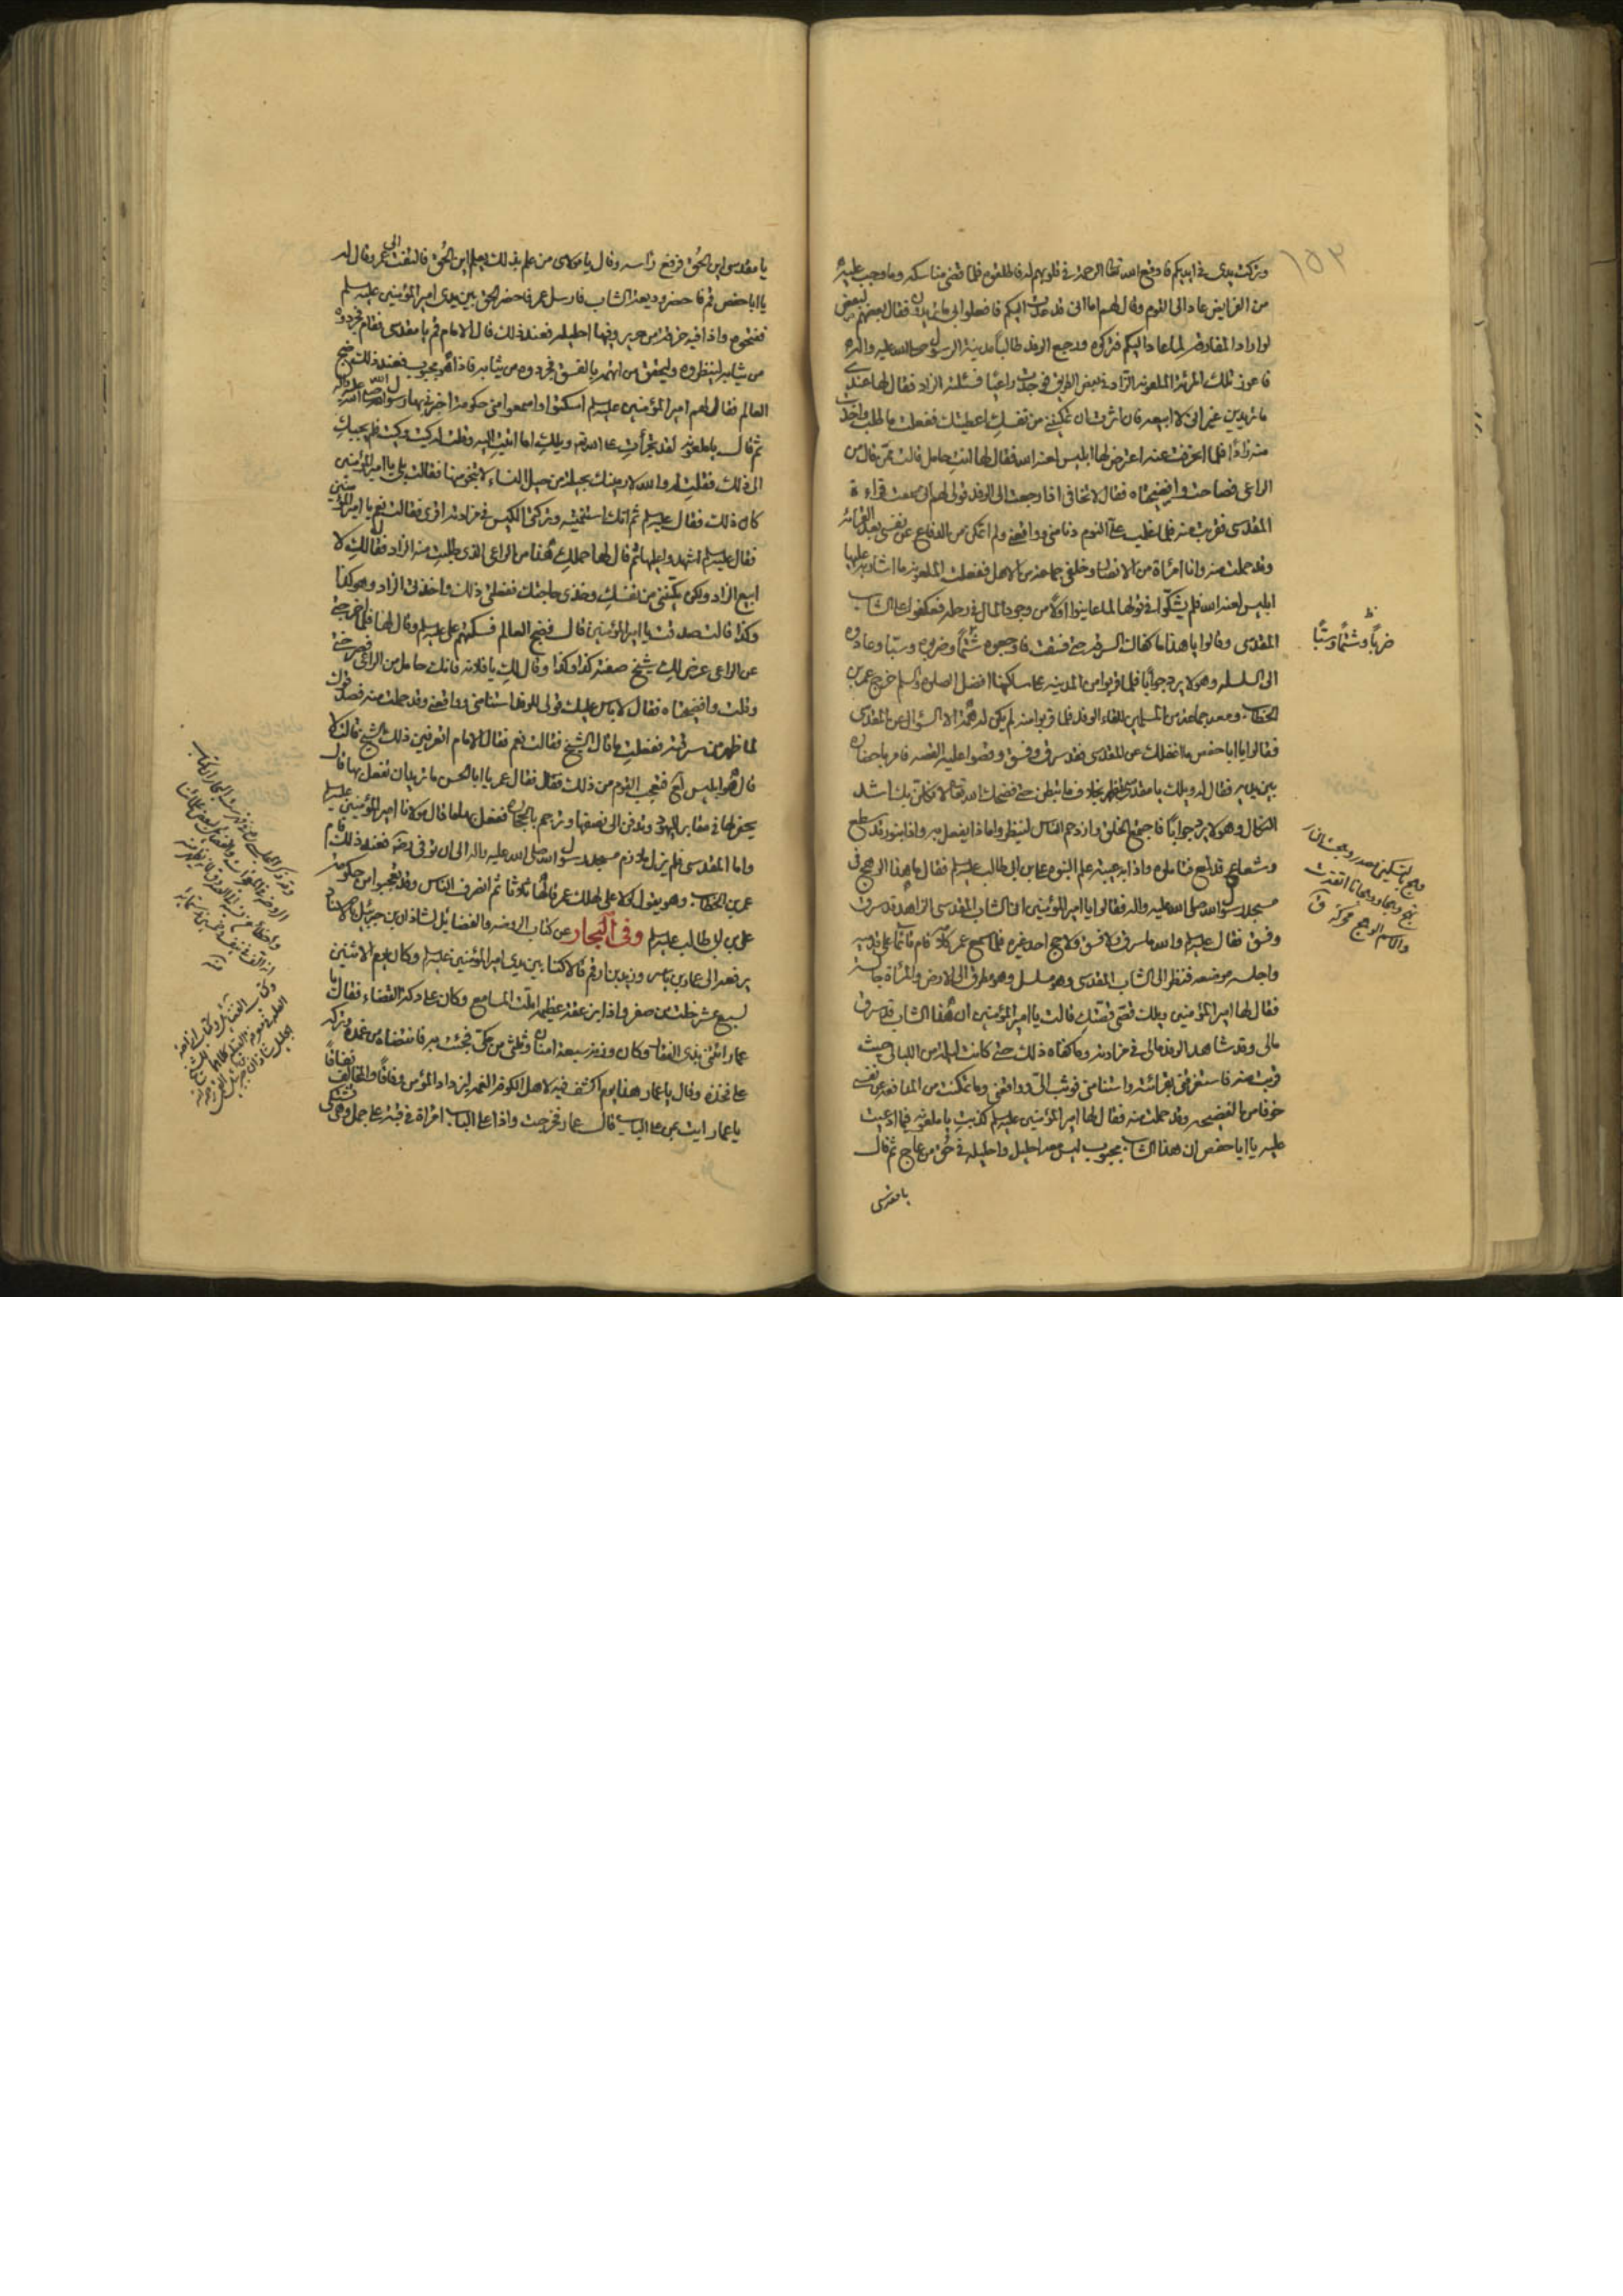 وتركت يدي في ايديكم فاوقع الله تعالى الرحمة في قلوبهم له فاطلقوه فلما قضى مناسكه وما وجب عليه
من الفرايض عاد الى القوم وقال لهم اما انى قد عدت اليكم فافعلوا بى ما تريدون فقال بعضهم لبعض
لو اراد المفارقة لما عاد اليكم فتركوه ورجع الوفد طالباً مدينة الرسول صلى الله عليه واله
فاعوز تلك المرئة الملعونة الزاد في بعض الطريق فوجدت راعياً فسئلته الزاد فقال لها عندى
ما تريدين غير انى لا ابيعه فان اثرت ان تمكنينى من نفسك اعطيتك ففعلت ما طلب واخذت
منه زاداً فلما انحرفت عنه اعترض لها ابليس لعنه الله فقال لها انت حامل قالت ممن قال من
الراعى فصاحت وافضيحتاه فقال لا تخافى اذا رجعت الى الوفد قولى لهم انى سمعت قراءة
المقدسى فقربت منه فلما غلب على النوم دنا منى وواقعنى ولم اتمكن من الدفاع عن نفسى بعد القرائة
وقد حملت منه وانا امرأة من الانصار وخلفى جماعة من الاهل ففعلت الملعونة ما اشار به عليها
ابليس لعنه الله فلم يشكّوا في قولها لما عاينوا اولاً من وجود المال في رحله فعكفوا على الشاب
المقدسى وقالوا يا هذا ما كفاك السرقة حتى فسقت فاوجعوه شتماً وضربوه وسبّا وعادوه
الى السلسلة وهو لا يرد جواباً فلما قربوا من المدينة على ساكنها افضل الصلوة والسلم خرج عمر بن
الخطاب ومعه جماعة من المسلمين للقاء الوفد فلما قربوا منه لم يكن له همّة الا السؤال عن المقدسى
فقالوا يا ابا حفص ما اغفلك عن المقدسى فقد سرق وفسق وقصوا عليه القصه فامر باحضاره
بين يديه فقال له ويلك يا مقدسى تظهر بخلاف ما تبطن حتى فضحك الله تعالى لانكلن بك اشد
النكال وهو لا يرد جواباً فاجتمع الخلق وازدحم الناس لينظروا ماذا يفعل به واذا بنور قد سطع
وشعاع قد لمع فتاملوه واذا به عيبة علم النبوة على بن ابى طالب عليه السلم فقال ما هذا الرهج فى
مسجد رسول الله صلى الله عليه واله فقالوا يا امير المؤمنين ان الشاب المقدسى الزاهد قد سرق
وفسق فقال عليه السلم والله ما سرق ولا فسق ولا حج احد غيره فلما سمع عمر كلامه قام قائماً على قدميه
واجلسه موضعه فنظر الى الشاب المقدسى وهو مسلسل وهو مطرق الى الارض والمرأة جالسة
فقال لها امير المؤمنين ويلك قصّى قصّتك قالت يا امير المؤمنين ان هذا الشاب قد سرق
مالى وقد شاهد الوفد مالى في مزادته وما كفاه ذلك حتى كانت ليلة من الليالى حيث
قربت منه فاستغرقنى بقرائته واستنامنى فوثب الىّ وواقعنى وما تمكنت من المدافعة عن نفسى
خوفا من الفضيحه وقد حملت منه فقال لها امير المؤمنين عليه السلم كذبت يا ملعونه فيما ادعيت
عليه يا ابا حفص ان هذا الشاب مجبوب ليس معه احليل واحليله في حُق من عاج ثم قال
يا مقدسى
ضرباً وشتماً وسبّاً
يا مقدسى اين الحُق فرفع رأسه وقال يا مولاى من علم بذلك يعلم اين الحُق فالتفت الى عمر وقال له
يا ابا حفص قم فاحضر وديعة الشاب فارسل عمر فاحضر الحق بين يدى امير المؤمنين عليه السلم
ففتحوه واذا فيه خرقة من حرير وفيها احليله فعند ذلك قال الامام قم يا مقدسى فقام فجردوه
من ثيابه لينظروه وليحقق من اتهمه بالفسق فجردوه من ثيابه فاذا هو مجبوب فعند ذلك ضج
العالم فقال لهم امير المؤمنين عليه السلم اسكتوا واسمعوا منى حكومة اخبرنى بها رسول الله صلى الله عليه واله
ثم قال يا ملعونه لقد تجرأت على الله تع ويلك اما اتيت اليه وقلت له كيت وكيت فلم يجبك
الى ذلك فقلت له والله لارمينك بحيلة من حيل النساء لا تنجو منها فقالت بلى يا امير المؤمنين
كان ذلك فقال عليه السلم ثم انك استنمتيه وتركتى الكيس في مزادته اقرى فقالت نعم يا امير المؤمنين
فقال عليه السلم اشهدوا عليها ثم قال لها حملك هذا من الراعى الذى طلبت منه الزاد فقال لك لا
ابيع الزاد ولكن مكّنينى من نفسك وخذى حاجتك ففعلتى ذلك واخذتى الزاد وهو كذا
وكذا قالت صدقت يا امير المؤمنين قال فضج العالم فسكتهم على عليه السلم وقال لها فلما خرجتى
عن الراعى عرض لك شيخ صفته كذا وكذا وقال لك يا فلانه فانك حامل من الراعى فصرختى
وقلت وافضيحتاه فقال لا باس عليك قولى للوفد استنامنى وواقعنى وقد حملت منه فصدقوك
لما ظهر من سرقته ففعلت ما قال الشيخ فقالت نعم فقال الامام اتعرفين ذلك الشيخ قالت لا
قال هو ابليس لع فتعجب القوم من ذلك فقال عمر يا ابا الحسن ما تريد ان تفعل بها قال
يحفر لها في مقابر اليهود وتدفن الى نصفها وترجم بالحجارة ففعل بها ما قال مولانا امير المؤمنين عليه السلم
واما المقدسى فلم يزل ملازم مسجد رسول الله صلى الله عليه واله الى ان توفى رضه فعند ذلك قام
عمر بن الخطاب وهو يقول لولا على لهلك عمر قالها ثلاثا ثم انصرف الناس وقد تعجبوا من حكومة
على بن ابى طالب عليه السلم وفى البحار عن كتاب الروضه والفضايل لشاذان بن جبرئيل بالاسناد
يرفعه الى عمار بن ياسر وزيد بن ارقم قالا كنا بين يدى امير المؤمنين عليه السلم وكان يوم الاثنين
لسبع عشر خلت من صفر واذا بزعقة عظيمه املت المسامع وكان على دكة القضاء فقال يا
عمار ائتنى بذى الفقار وكان وزنه سبعة امنان وثلثى من مكى فجئت به فانتضاه من غمده وتركه
على فخذه وقال يا عمار هذا يوم اكشف فيه لاهل الكوفة الغمه ليزداد المؤمن وفاقاً والمخالف نفاقاً
يا عمار ايت بمن على الباب قال عمار فخرجت واذا على الباب امرأة في قبة على جمل وهى تشتكى